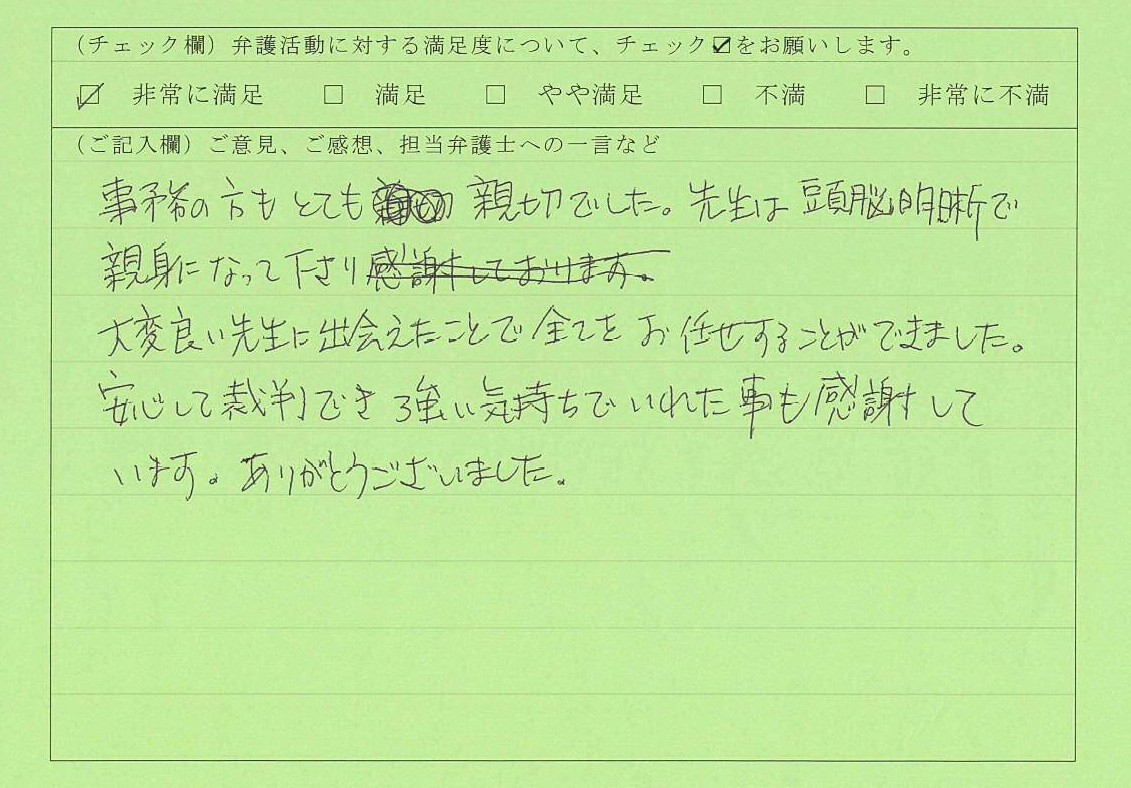 （チェック欄）弁護活動に対する満足度について、チェック☑をお願いします。
☑ 非常に満足 □ 満足 □ やや満足 □ 不満 □ 非常に不満
（ご記入欄）ご意見、ご感想、担当弁護士への一言など
事務の方もとても 親切でした。先生は頭脳明晰で
親身になって下さり感謝しております。
大変良い先生に出会えたことで全てをお任せすることができました。
安心して裁判でき強い気持ちでいれた事も感謝して
います。ありがとうございました。